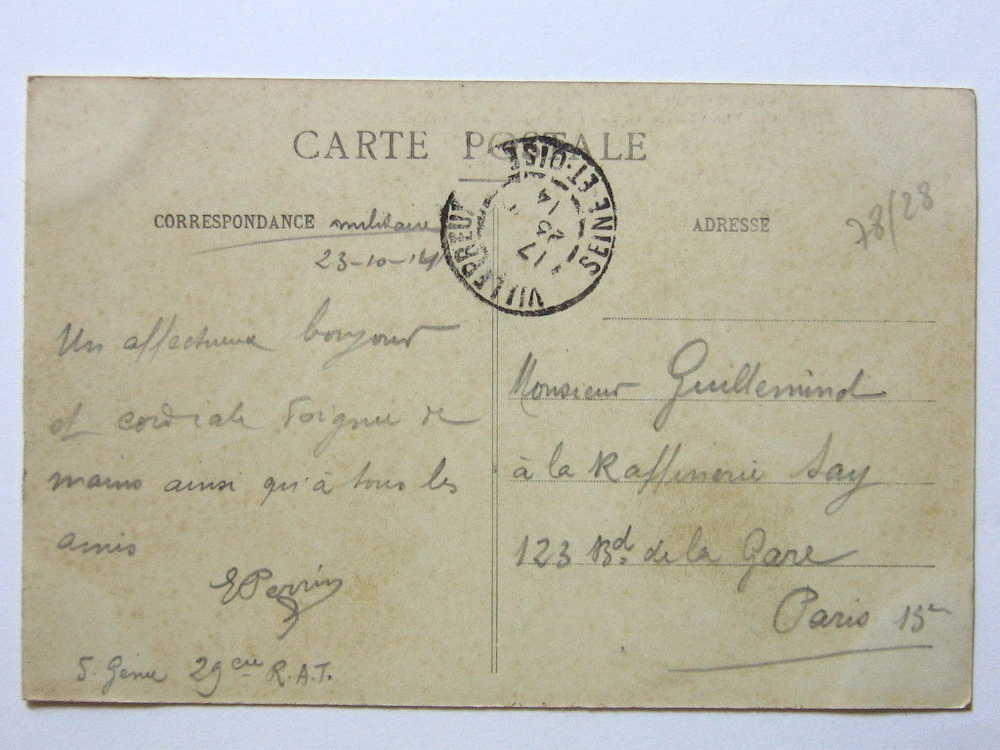 CARTE POSTALE
CORRESPONDANCE militaire
23-10-14
Un affectueux bonjour
et cordiale Poignée de
mains ainsi qu'à tous les
amis
E Perrin
5. Génie 29 cie R.A.T.
VILLEPREUX
SEINE-ET-OISE
17
25
14
ADRESSE
78/28
Monsieur Guilleminot
à la Raffinerie Say
123 Bd. de la Gare
Paris 13e